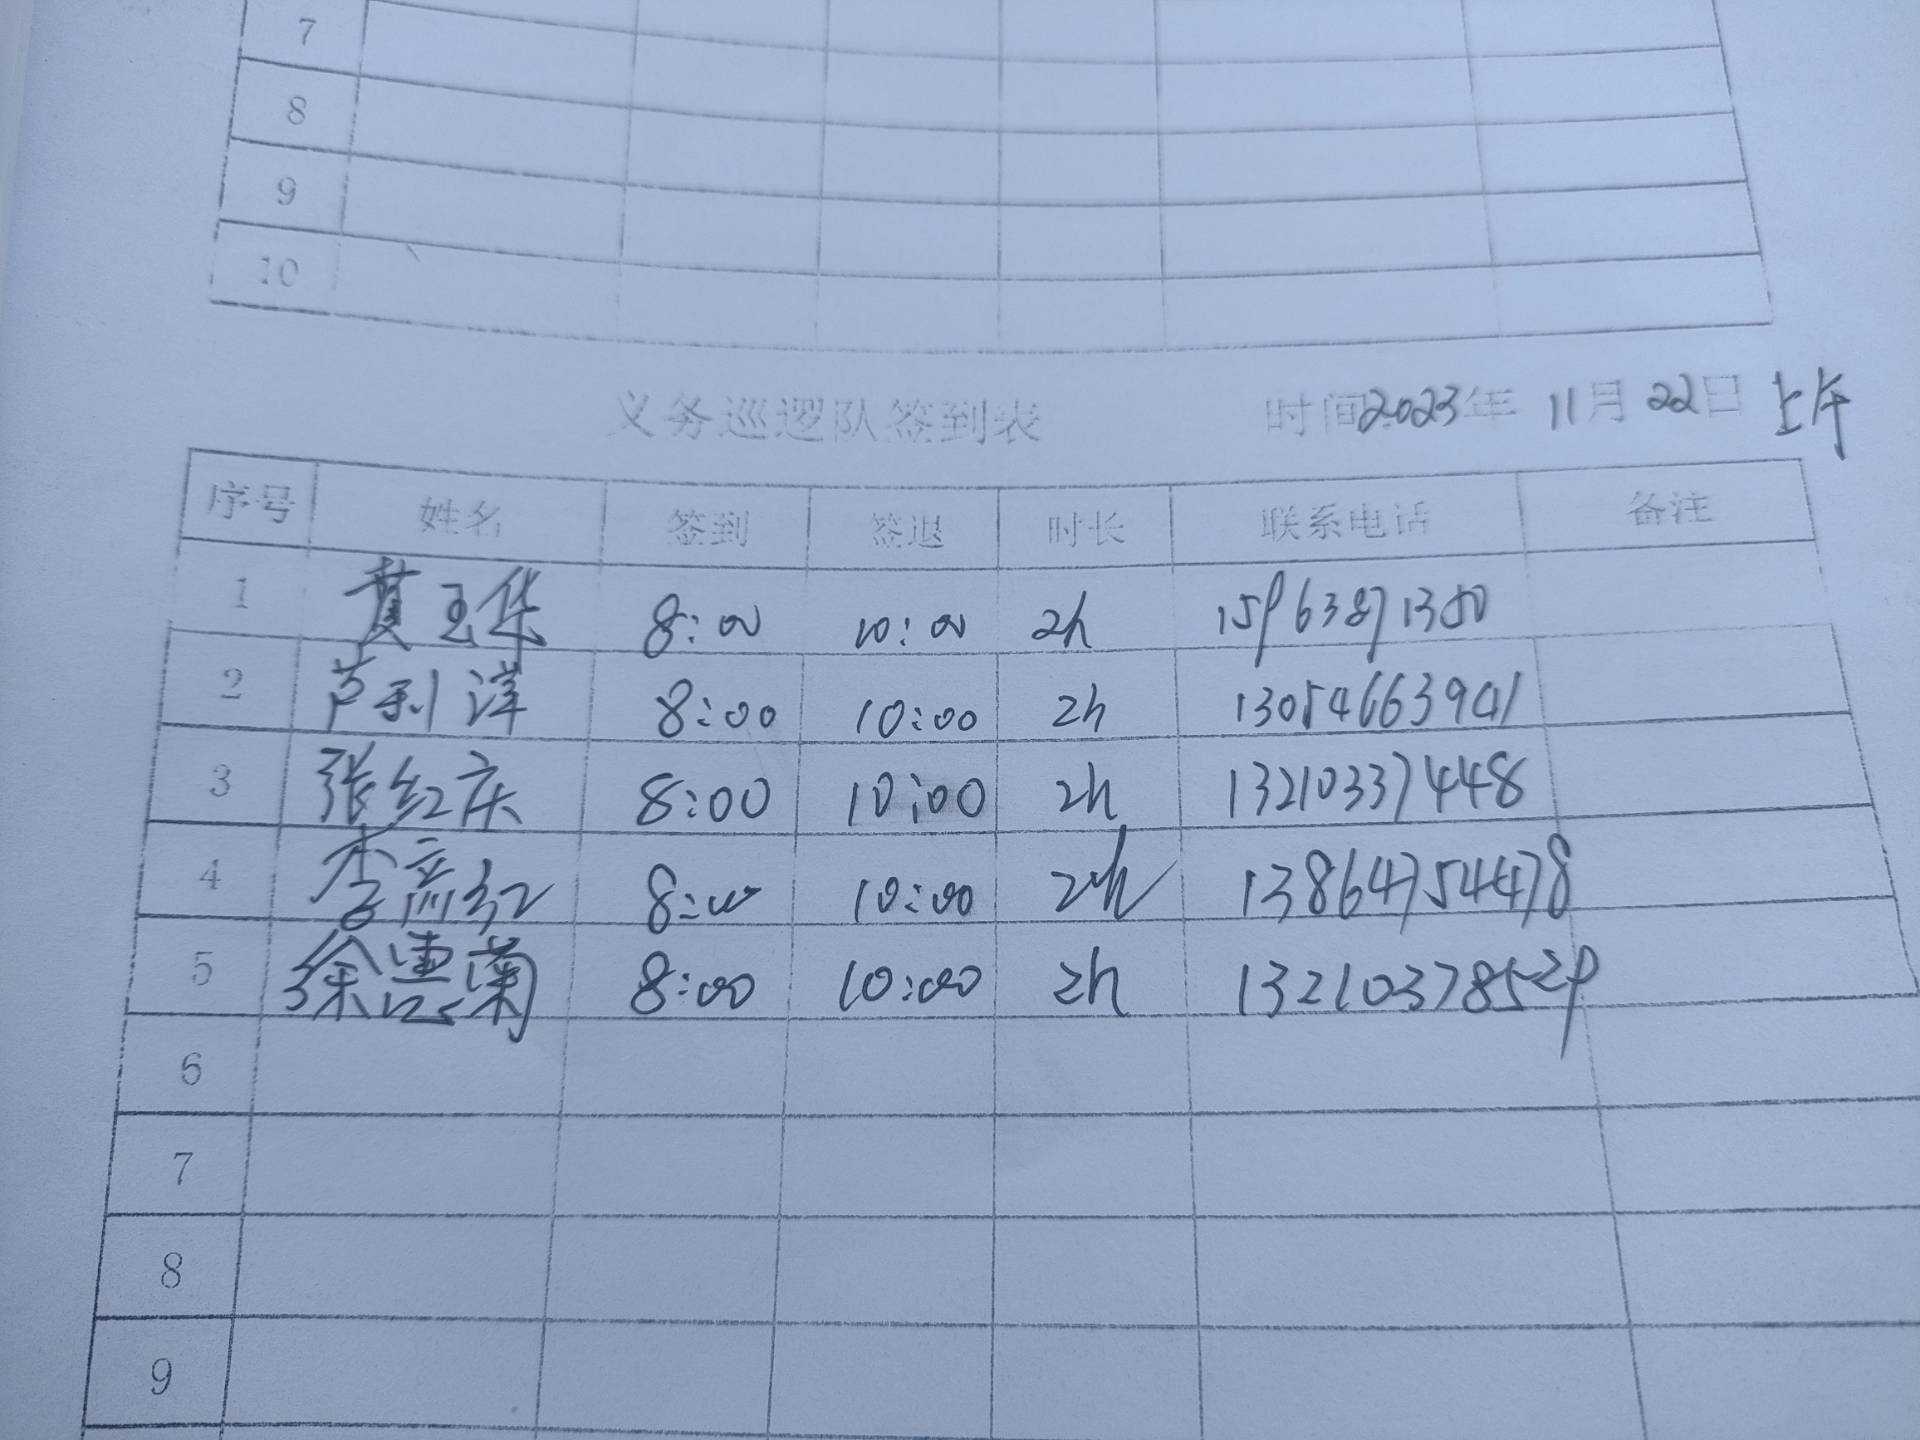 7
8
9
10
义务巡逻队签到表 时间2023年 11月22日 上午
序号 姓名 签到 签退 时长 联系电话 备注
1 黄玉华 8:00 10:00 2h 15963871350
2 芦利洋 8:00 10:00 2h 13054663941
3 张红庆 8:00 10:00 2h 13210337448
4 李彦红 8:00 10:00 2h 13864754478
5 徐惠菊 8:00 10:00 2h 13210378529
6
7
8
9